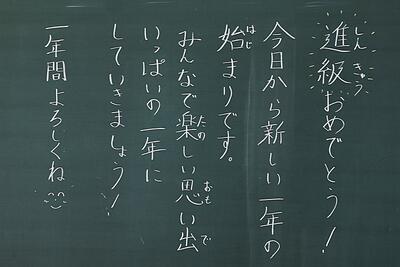 進級おめでとう！
今日から新しい一年の
始まりです。
みんなで楽しい思い出
いっぱいの一年に
していきましょう！
一年間よろしくね
しんきゅう
はじ
たの
おも
で